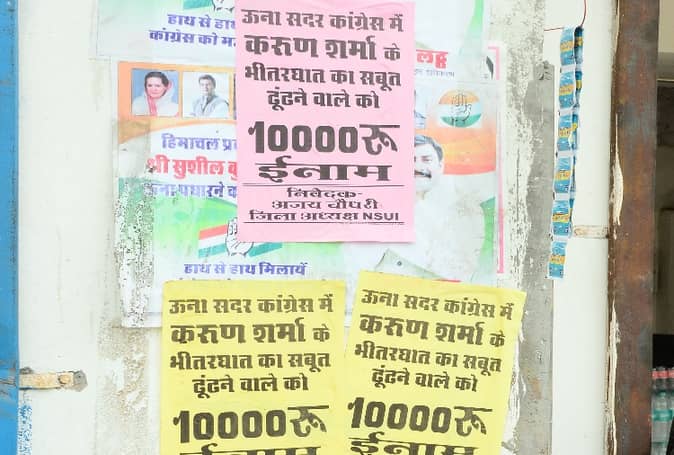 हाथ से हाथ
कांग्रेस को
ऊना सदर कांग्रेस में
करूण शर्मा के
भीतरघात का सबूत
ढूंढने वाले को
10000रू
ईनाम
निवेदक-
अजय चौधरी
जिला अध्यक्ष NSUI
हिमाचल
श्री सुशील
ऊना पधारने
हाथ से हाथ मिलायें
ऊना सदर कांग्रेस में
करूण शर्मा के
भीतरघात का सबूत
ढूंढने वाले को
10000रू
ईनाम
ऊना सदर कांग्रेस में
करूण शर्मा के
भीतरघात का सबूत
ढूंढने वाले को
10000रू
ईनाम